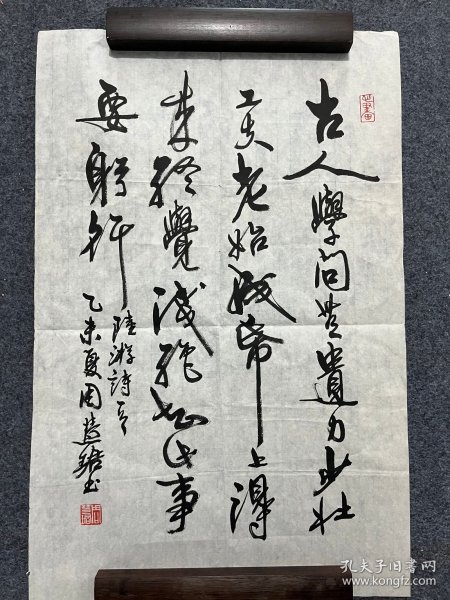 古人學問無遺力少壯
工夫老始成帋上得
来終覺淺絶知此事
要躬行
陸游詩
乙未夏周慧書
孔夫子旧书网
www.kongfz.com